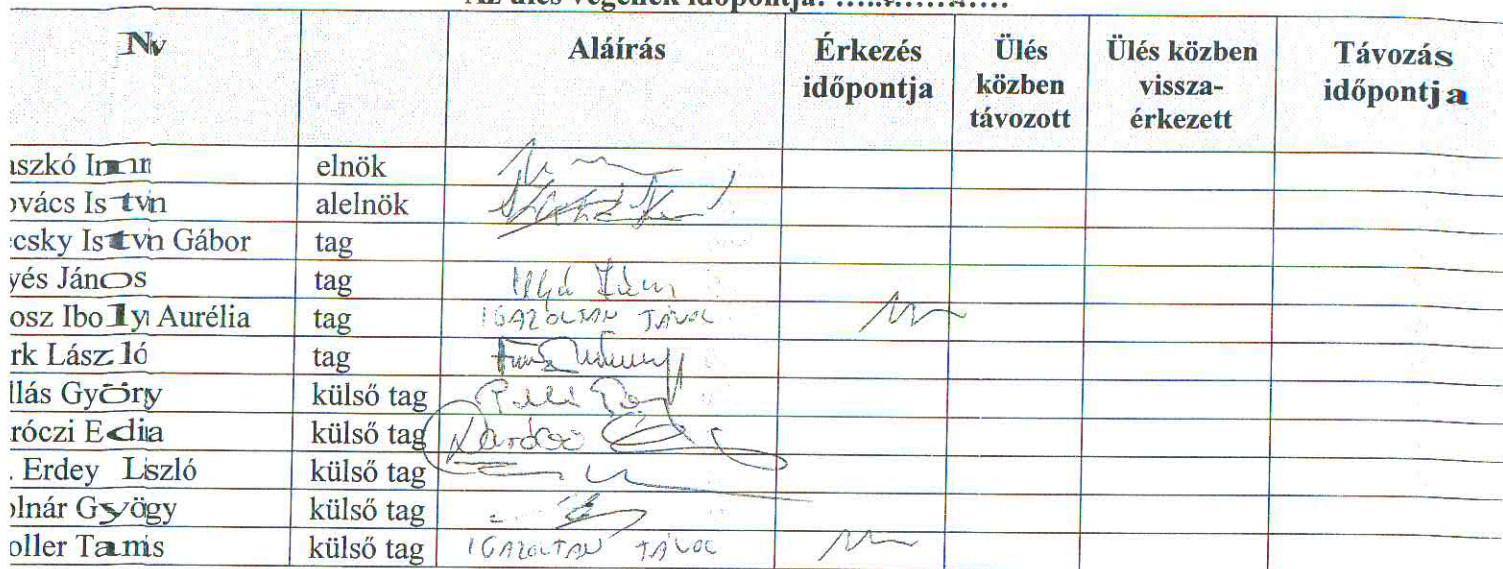 Az ülés végének időpontja: ..................
Név Aláírás Érkezés időpontja Ülés közben távozott Ülés közben vissza-érkezett Távozás időpontja
aszkó Imre elnök
ovács István alelnök
ecsky István Gábor tag
yés János tag
osz Ibolya Aurélia tag IGAZOLTAN TÁVOL
rk László tag
llás György külső tag
róczi Edina külső tag
. Erdey László külső tag
olnár György külső tag
oller Tamás külső tag IGAZOLTAN TÁVOL